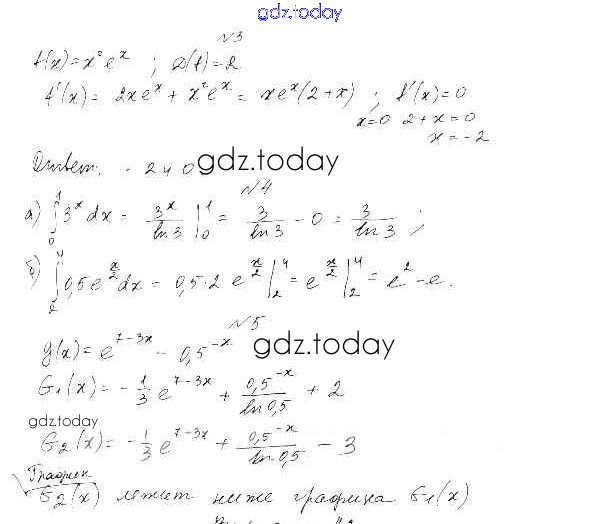 gdz.today
№3
f(x) = x²eˣ ; D(f) = R
f'(x) = 2xeˣ + x²eˣ = xeˣ(2+x) ; f'(x) = 0
x=0 2+x=0
x=-2
Ответ: -2 и 0 gdz.today
№4
а) ∫₀¹ 3ˣ dx = 3ˣ/ln3 |₀¹ = 3/ln3 - 0 = 3/ln3 ;
б) ∫₂⁴ 0,5e^(x/2) dx = 0,5·2 e^(x/2) |₂⁴ = e^(x/2) |₂⁴ = e² - e.
№5
g(x) = e^(7-3x) - 0,5^(-x) gdz.today
G₁(x) = -1/3 e^(7-3x) + 0,5^(-x)/ln0,5 + 2
gdz.today
G₂(x) = -1/3 e^(7-3x) + 0,5^(-x)/ln0,5 - 3
График
G₂(x) лежит ниже графика G₁(x)